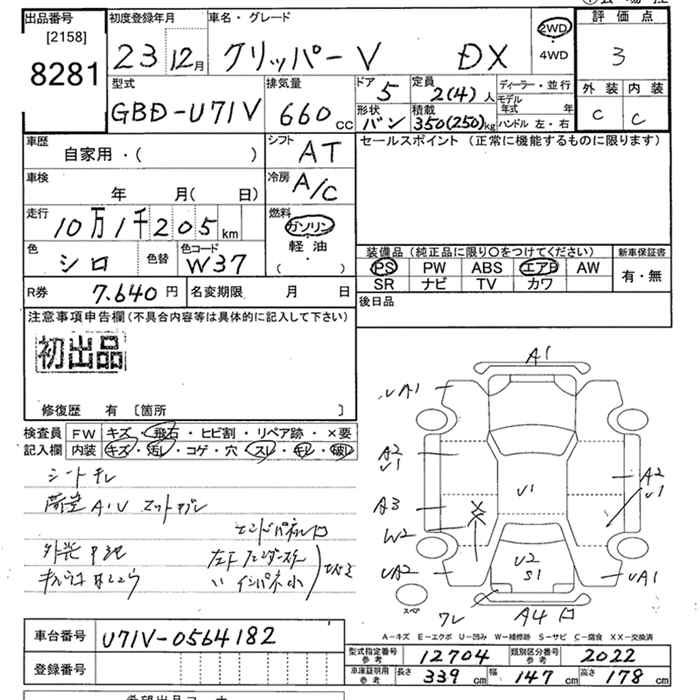 出品番号
[2158]
8281
初度登録年月
23年12月
車名・グレード
クリッパーV DX
2WD
・
4WD
評価点
3
外装 内装
C C
型式
GBD-U71V
排気量
660 CC
ドア
5
定員
2(4)人
形状
バン
積載
350(250)kg
ディーラー・並行
モデル年式 年
ハンドル 左・右
車歴
自家用・( )
シフト
AT
セールスポイント(正常に機能するものに限ります)
車検
年 月( 日)
冷房
A/C
走行
10万1千205km
燃料
ガソリン
軽・油
( )
色
シロ
色替
色コード
W37
装備品(純正品に限り○をつけてください)
新車保証書
PS PW ABS エアB AW
SR ナビ TV カワ
有・無
R券 7,640円
名変期限 月 日
後日品
注意事項申告欄(不具合内容等は具体的に記入して下さい)
初出品
修復歴 有 [箇所 ]
検査員
記入欄
FW キズ・飛石・ヒビ割・リペア跡・×要
内装 キズ・汚レ・コゲ・穴・スレ・キレ・破レ
シートキレ
A1
UA1 UA1
A2
U1
A3
W2
UA2
U1
A2
U1
UA1
U2
S1
ワレ
A4
スペア
A-キズ E-エクボ U-凹み W-補修跡 S-サビ C-腐食 XX-交換済
車台番号 U71V-0564182
登録番号
型式指定番号
参考
12704
類別区分番号
参考
2022
車庫証明用
参考
長さ 339cm 幅 147cm 高さ 178cm